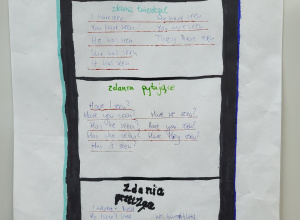 zdania twierdzące
I have seen We have seen
You have seen You have seen
He has seen They have seen
She has seen
It has seen
zdania pytające
Have I seen?
Have you seen? Have we seen?
Has he seen? Have you seen?
Has she seen? Have they seen?
Has it seen?
zdania